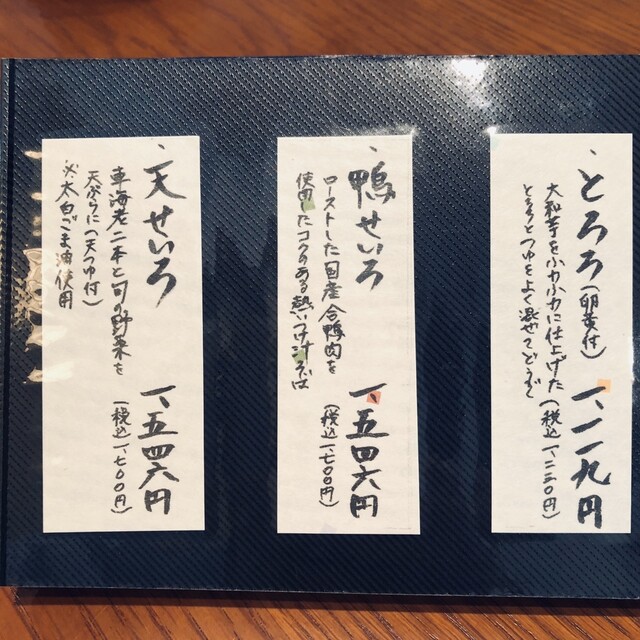 、とろろ(卵黄付) 一、一一九円
大和芋をふわふわに仕上げた (税込一、二三〇円)
とろろとつゆをよく混ぜてどうぞ
、鴨せいろ 一、五四六円
ローストした国産合鴨肉を (税込一、七〇〇円)
使用したコクのある熱いつけ汁そば
、天せいろ 一、五四六円
車海老二本と旬の野菜を (税込一、七〇〇円)
天ぷらに(天つゆ付)
※太白ごま油使用